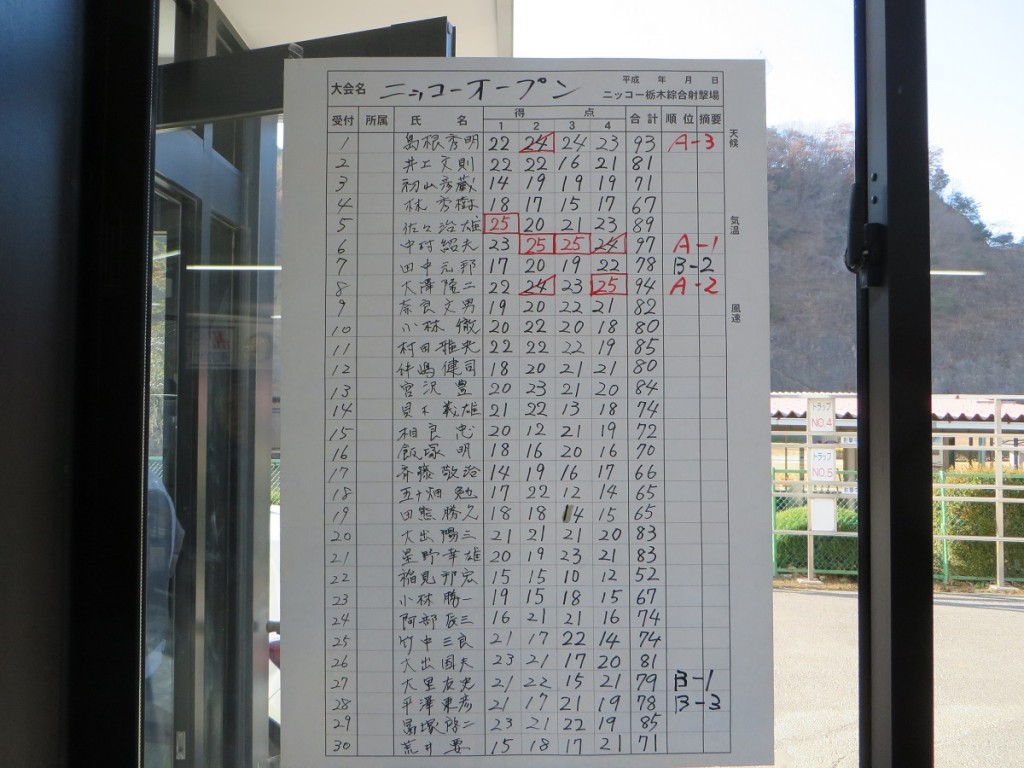 大会名 ニッコーオープン 平成 年 月 日
ニッコー栃木綜合射撃場
受付 所属 氏名 得点 合計 順位 摘要
1 2 3 4
1 島根秀明 22 24 24 23 93 A-3
2 井上文則 22 22 16 21 81
3 初山彦蔵 14 19 19 19 71
4 林秀樹 18 17 15 17 67
5 佐々治雄 25 20 21 23 89
6 中村紹夫 23 25 25 24 97 A-1
7 田中元邦 17 20 19 22 78 B-2
8 大澤隆二 22 24 23 25 94 A-2
9 奈良文男 19 20 22 21 82
10 小林徹 20 22 20 18 80
11 村田雅央 22 22 22 19 85
12 伴嶋健司 18 20 21 21 80
13 宮沢豊 20 23 21 20 84
14 義雄 21 22 13 18 74
15 相良忠 20 12 21 19 72
16 飯塚明 18 16 20 16 70
17 斉藤敬治 14 19 16 17 66
18 五十畑勉 17 22 12 14 65
19 田熊勝久 18 18 14 15 65
20 大出陽三 21 21 21 20 83
21 星野幸雄 20 19 23 21 83
22 稲見邦宏 15 15 10 12 52
23 小林勝一 19 15 18 15 67
24 阿部辰三 16 21 21 16 74
25 竹中三良 21 17 22 14 74
26 大出国夫 23 21 17 20 81
27 大里友史 21 22 15 21 79 B-1
28 平澤東彦 21 17 21 19 78 B-3
29 冨塚啓二 23 21 22 19 85
30 荒井要 15 18 17 21 71
天候
気温
風速
トラップ
NO.4
トラップ
NO.5